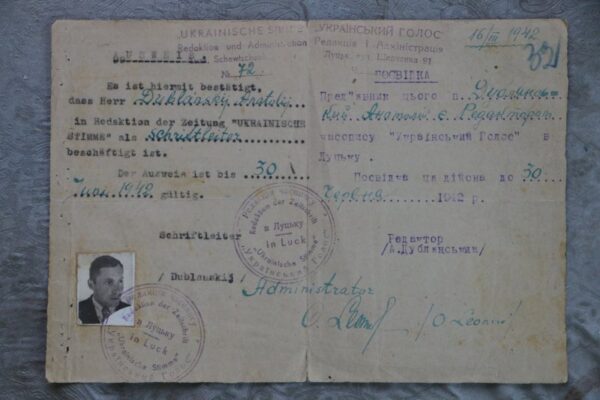 "UKRAINISCHE STIMME"
Redaktion und Administration
Schewtschenko
AUSWEIS
№ 72
Es ist hiermit bestätigt,
dass Herr Dublansky Anatolij
in Redaktion der Zeitung "UKRAINISCHE
STIMME" als Schriftleiter
beschäftigt ist.
Der Ausweis ist bis 30
Juni 1942 gültig.
Schriftleiter
/Dublanskij/
"УКРАЇНСЬКИЙ ГОЛОС"
Редакція і Адміністрація
Луцьк, вул. Шевченка 91
16/III 1942
321
ПОСВІДКА
Пред'явник цього п. Дублянсь-
кий Анатоль є Редактором
часопису "Український Голос" в
Луцьку.
Посвідка ця дійсна до 30
Червня 1942 р.
Редактор
/А.Дублянський/
Administrator
Redaktion der Zeitschrift
в Луцьку
in Luck
"Ukrainische Stimme"
"Український Голос"
Redaktion der Zeitschrift
в Луцьку
in Luck
"Ukrainische Stimme"
"Український Голос"